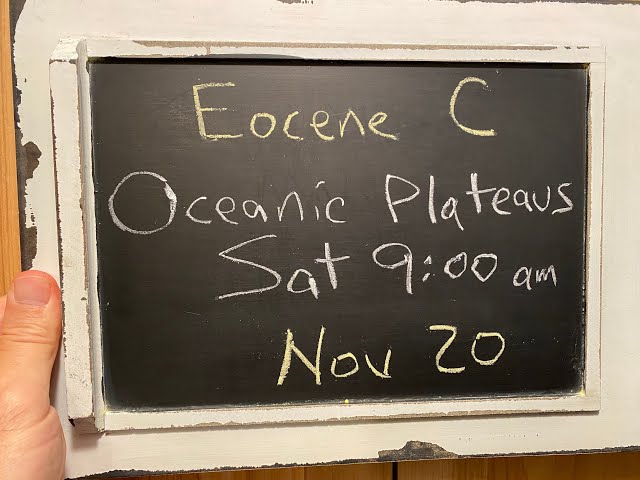 Eocene C
Oceanic Plateaus
Sat 9:00 am
Nov 20